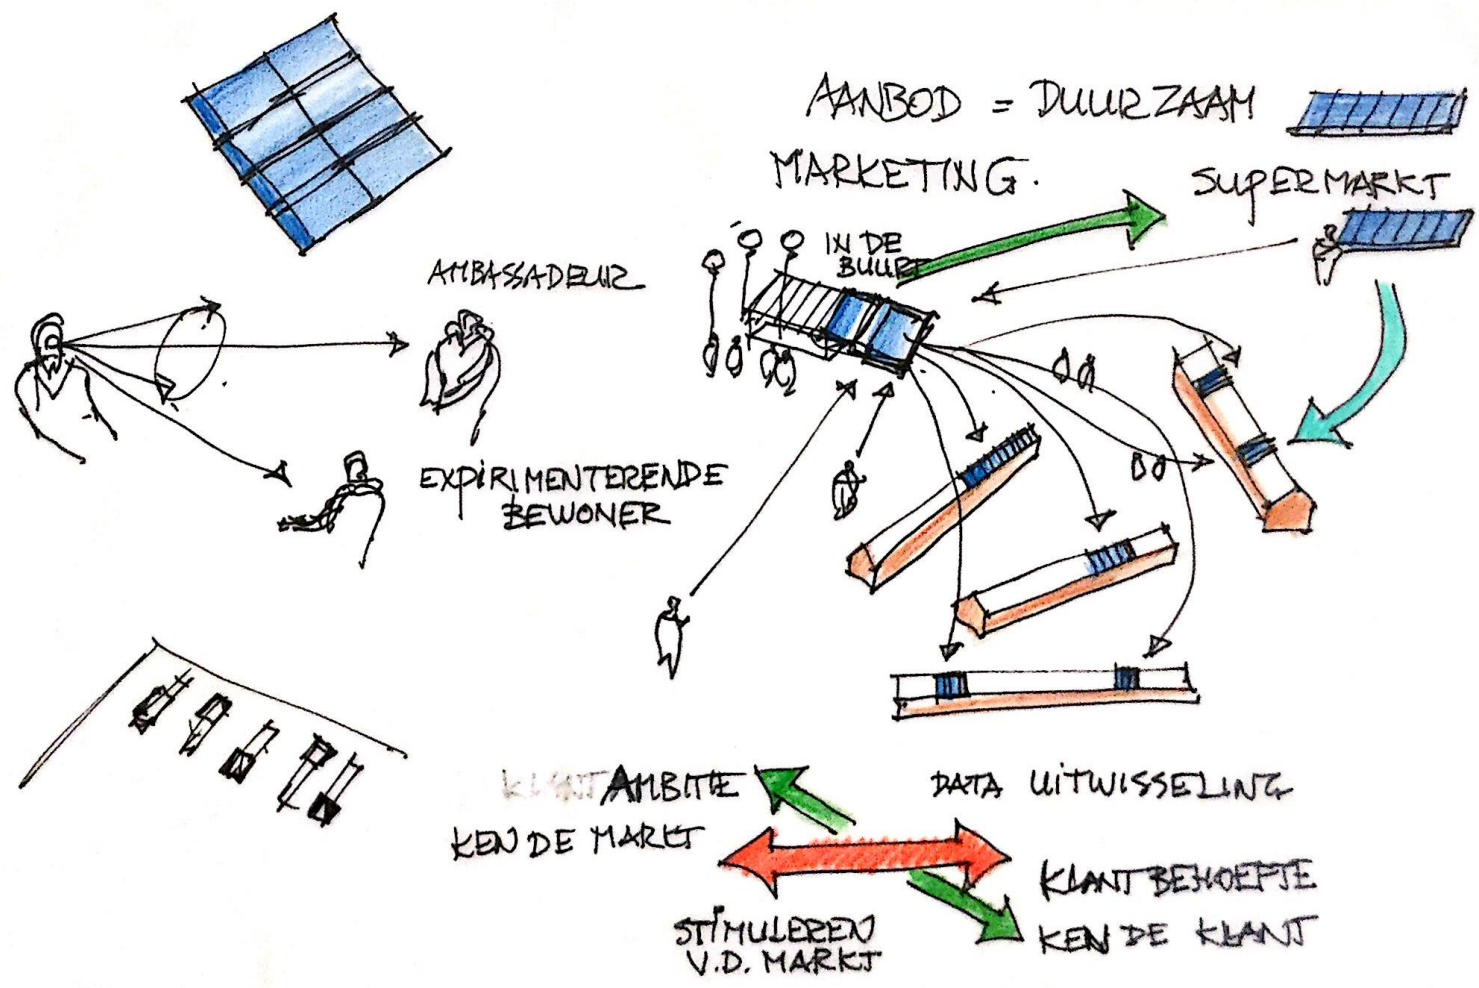 AANBOD = DUURZAAM
MARKETING.
SUPERMARKT
IN DE
BUURT
AMBASSADEUR
EXPIRIMENTERENDE
BEWONER
KLANT AMBITIE
KEN DE MARKT
DATA UITWISSELING
KLANTBEHOEFTE
KEN DE KLANT
STIMULEREN
V.D. MARKT